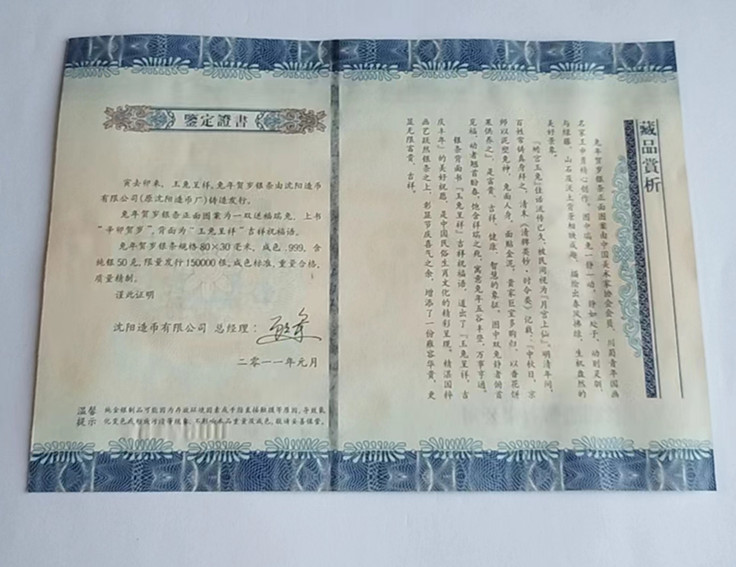 鑒定證書
寅去卯来，玉兔呈祥，兔年贺岁银条由沈阳造币
有限公司(原沈阳造币厂)铸造发行。
兔年贺岁银条正面图案为一双送福瑞兔，上书
“辛卯贺岁”，背面为“玉兔呈祥”吉祥祝福语。
兔年贺岁银条规格80×30毫米，成色.999，含
纯银50克，限量发行150000根，成色标准，重量合格，
质量精制。
谨此证明
沈阳造币有限公司 总经理：
二零一一年元月
温馨
提示
化变色或细微污渍等现象，不影响本品重量及成色，敬请妥善保管。
藏品赏析
兔年贺岁银条正面图案由中国美术家协会会员、
名家王申勇精心创作。图中瑞兔一静一动，静如处子，动则灵驯，
与缠藤、山石及沃土背景相映成趣，描绘出春风拂绿、生机盎然的
美好景象。
“蛇盘玉兔”佳话流传已久，被民间视为“月宫上仙”。明清年间，
百姓常俦真身拜之，清末《清稗类钞·时令类》记载：“中秋日，京
师以泥塑兔神，兔面人身，面贴金泥，
果供养之”，是富贵、吉祥、健康、智慧的象征。图中双兔静者俯首
觅福，动者翘首盼春，饱含祥瑞之兆，寓意兔年五谷丰登、万事亨通。
银条背面书“玉兔呈祥”吉祥祝福语，道出了“玉兔呈祥，吉
庆丰年”的美好祝愿，是中国民俗生肖文化的精彩呈现。精湛国粹
画艺跃然银条之上，彰显节庆喜气之余，增添了一份雍容华贵，更
显无限富贵、吉祥。